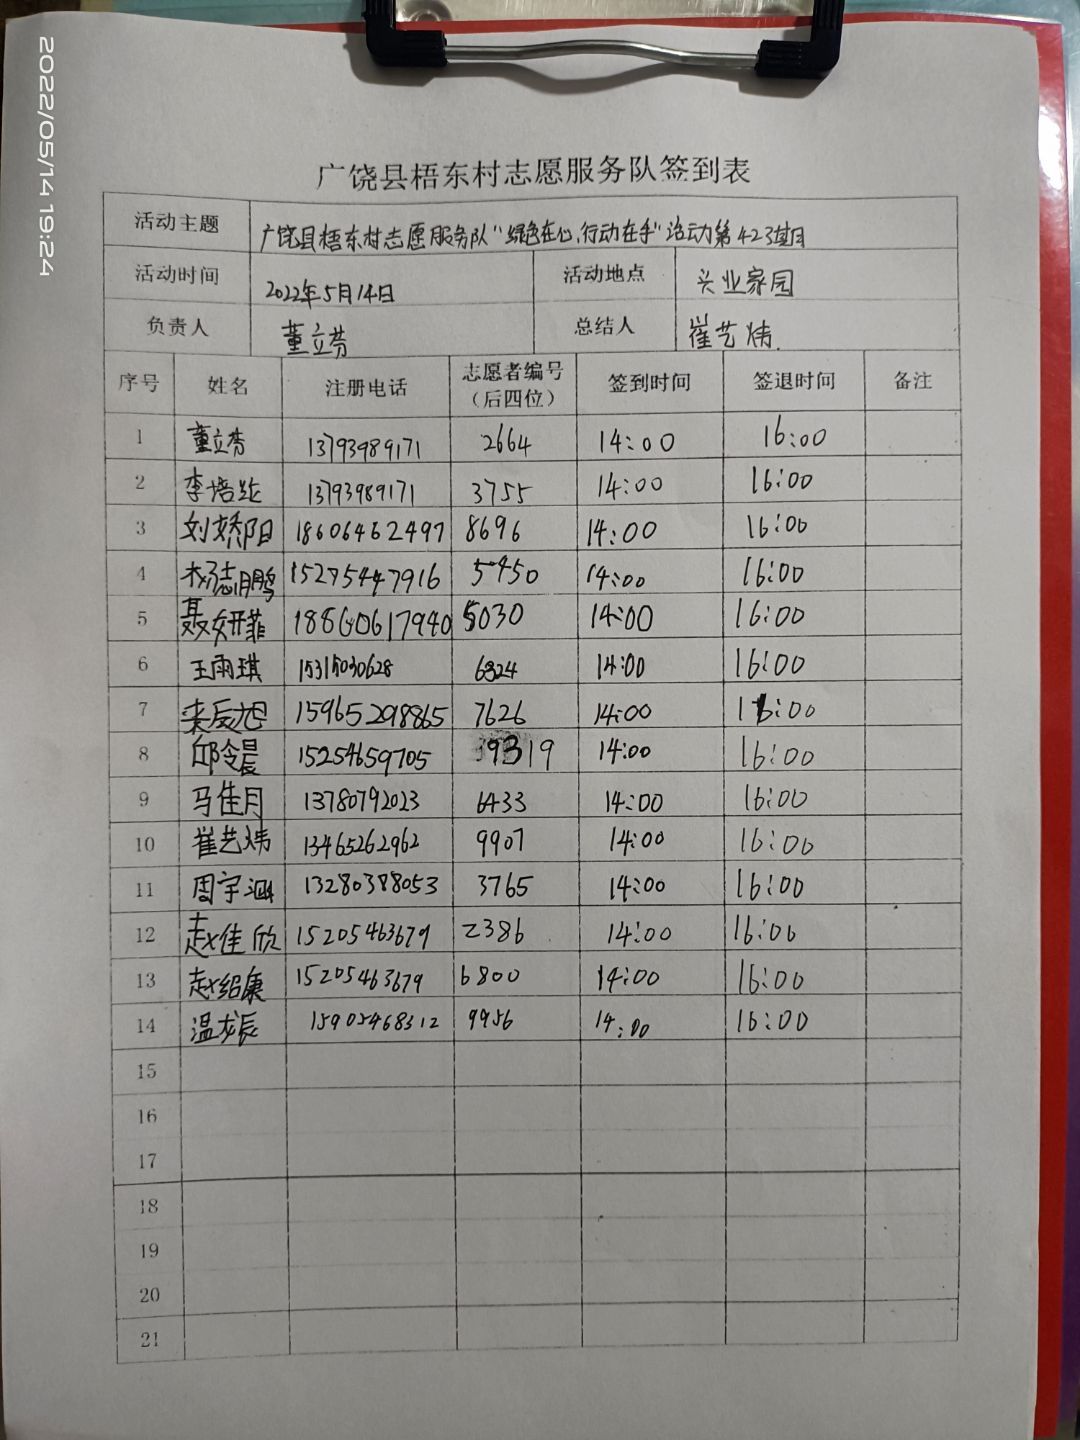 2022/05/14 19:24
广饶县梧东村志愿服务队签到表
活动主题 广饶县梧东村志愿服务队“绿色在心,行动在手”活动第423期
活动时间 2022年5月14日 活动地点 兴业家园
负责人 董立芬 总结人 崔艺炜.
序号 姓名 注册电话 志愿者编号（后四位） 签到时间 签退时间 备注
1 董立芬 13793989171 2664 14:00 16:00
2 李培 13793989171 3755 14:00 16:00
3 刘娇阳 18606462497 8696 14:00 16:00
4 杨志鹏 15275447916 5450 14:00 16:00
5 聂妍菲 18860617940 5030 14:00 16:00
6 王雨琪 15315030628 6324 14:00 16:00
7 15965298865 7626 14:00 16:00
8 邱令晨 15254659705 9319 14:00 16:00
9 马佳月 13780792023 6433 14:00 16:00
10 崔艺炜 13465262962 9907 14:00 16:00
11 周宇涵 13280388053 3765 14:00 16:00
12 赵佳欣 15205463679 2386 14:00 16:00
13 赵绍康 15205463679 6800 14:00 16:00
14 温龙辰 15905468312 9956 14:00 16:00
15
16
17
18
19
20
21